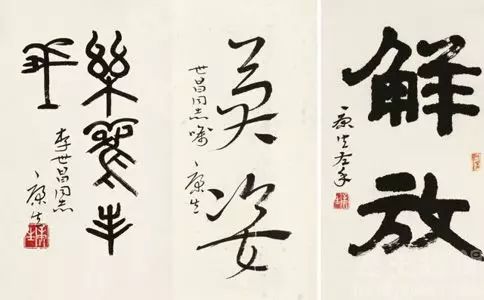 解放
康生左手
英姿
世昌同志嘱
康生
樂
李世昌同志
康生